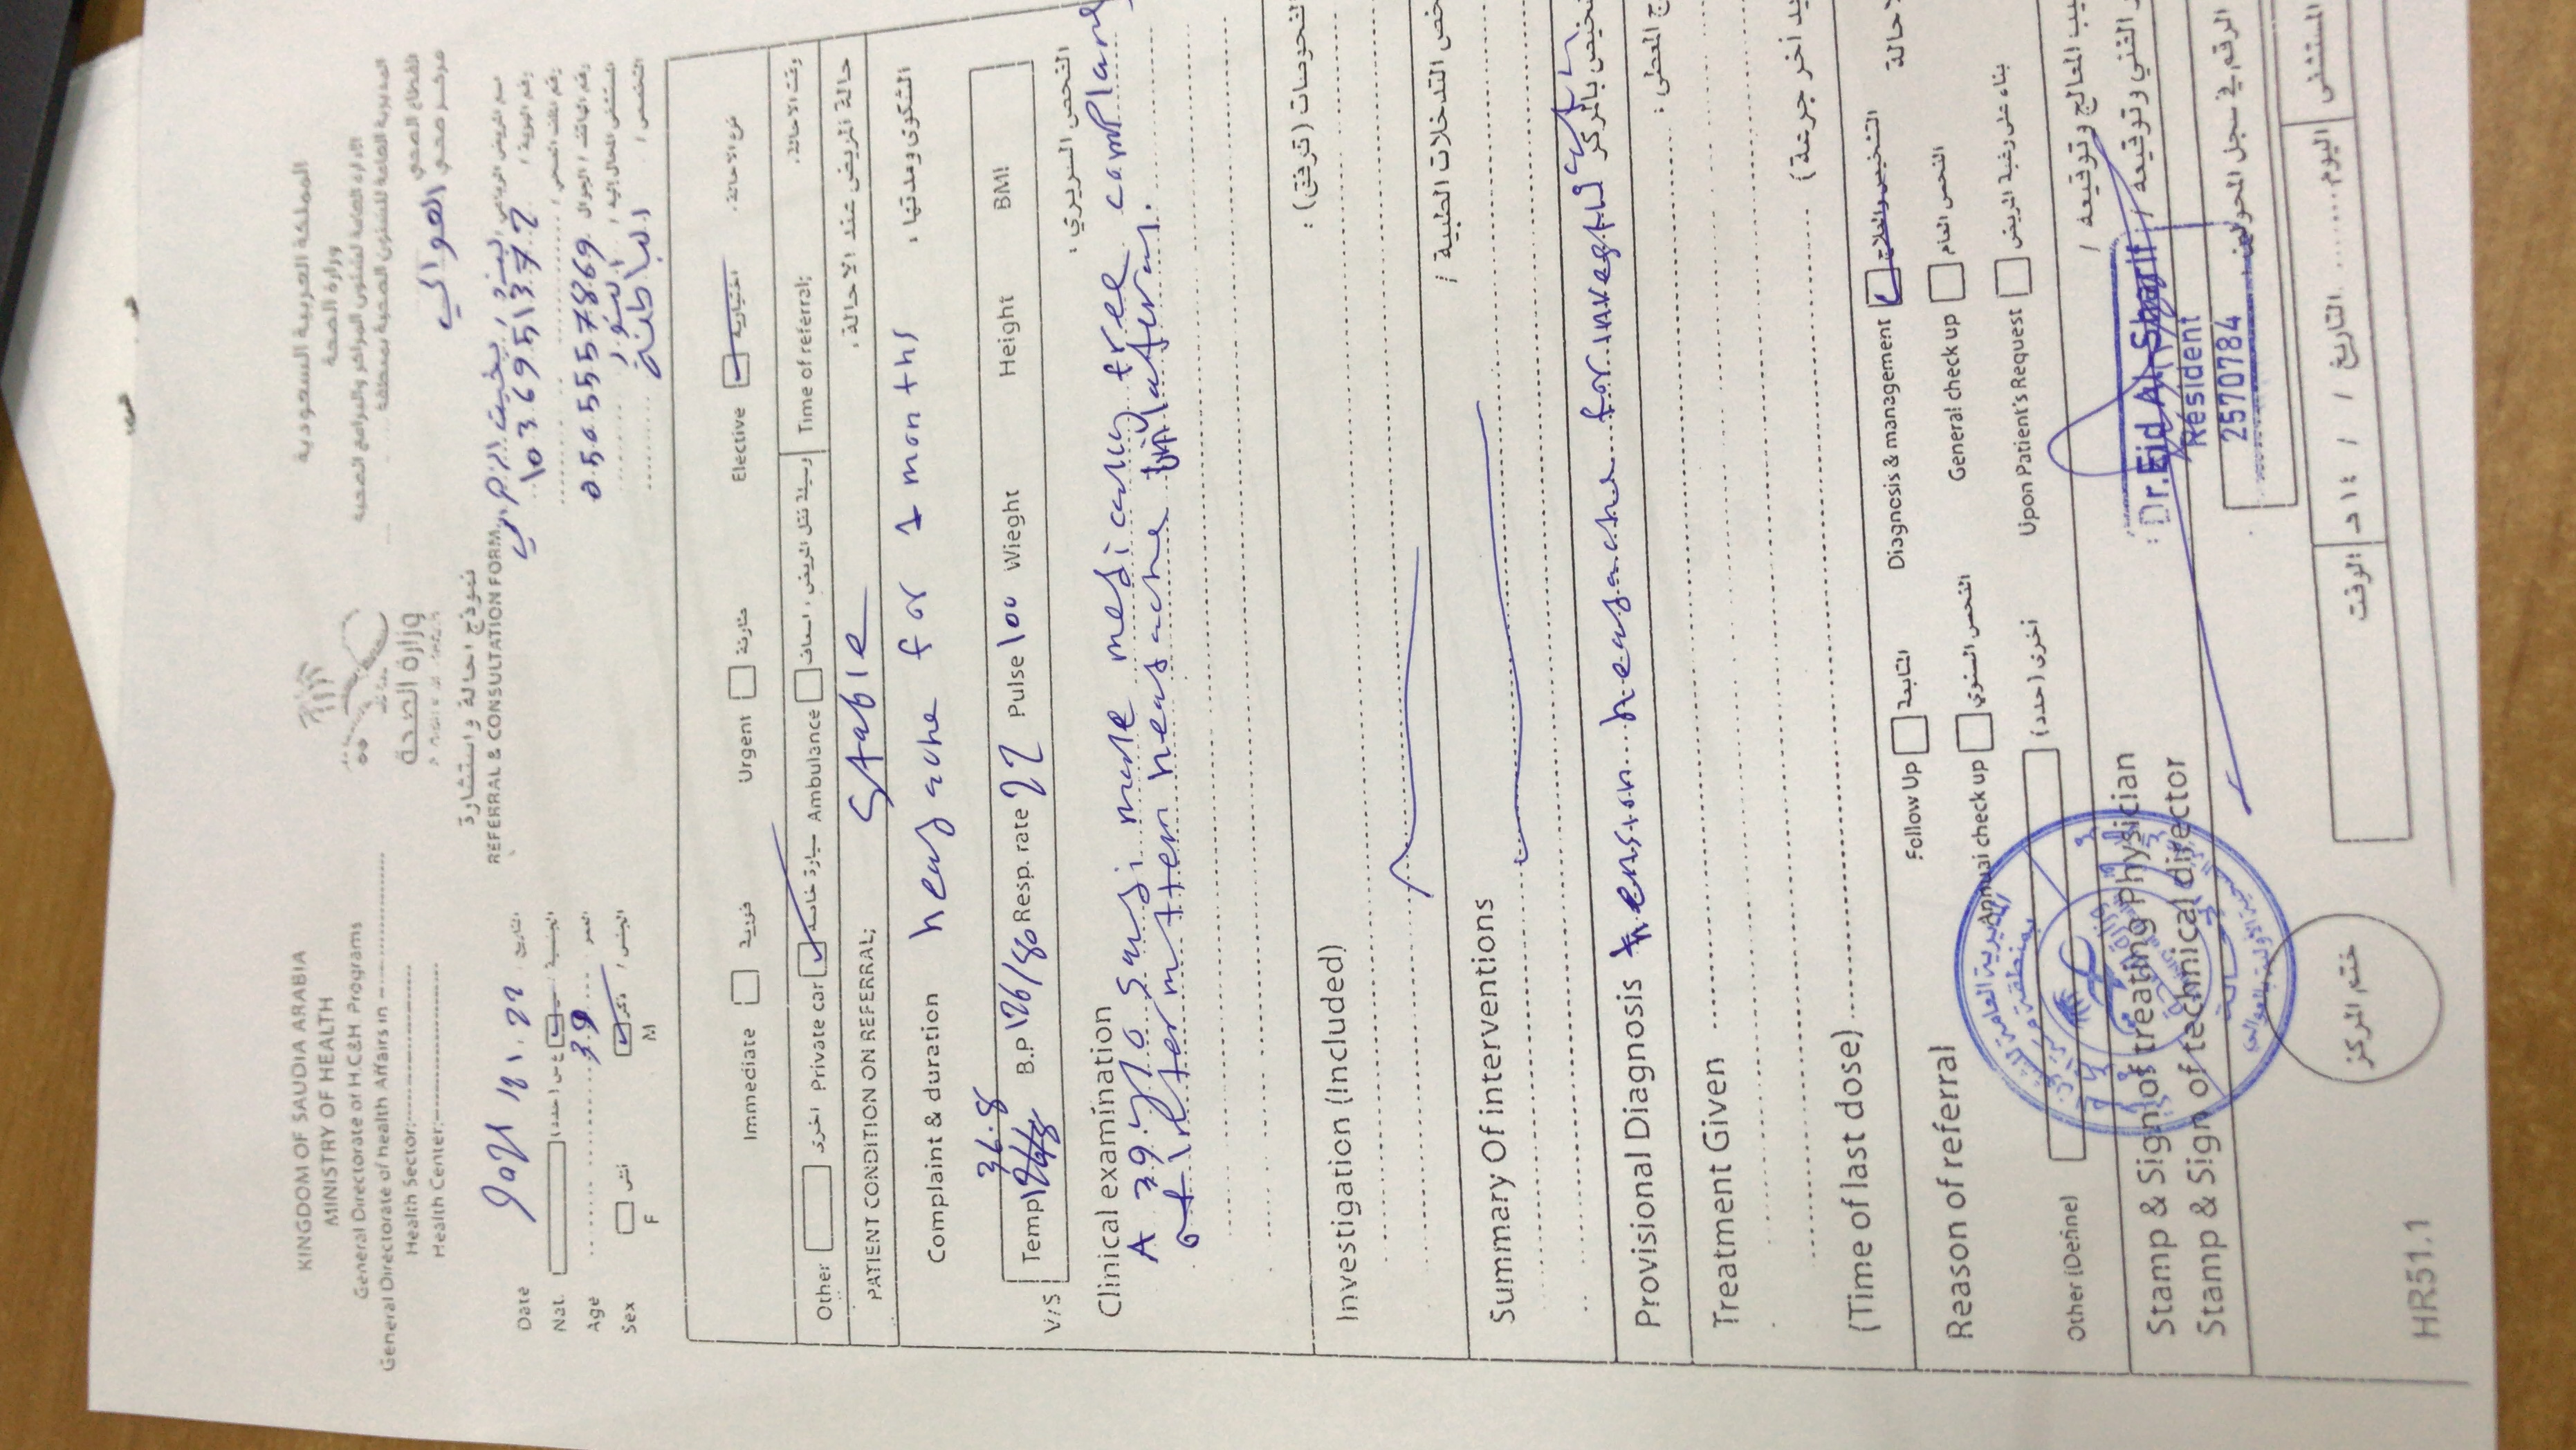 KINGDOM OF SAUDIA ARABIA
MINISTRY OF HEALTH
General Directorate of H.C&H. Programs
General Directorate of health Affairs in
Health Sector:
Health Center:
المملكة العربية السعودية
وزارة الصحة
الإدارة العامة لشئون المراكز والبرامج الصحية
المديرية العامة للشئون الصحية بمنطقة
القطاع الصحي
مركز صحي العوالي
وزارة الصحة
نموذج احالة واستشارة
REFERRAL & CONSULTATION FORM
اسم المريض الرباعي /
رقم الهوية / 1036951372
رقم الملف الصحي /
رقم الهاتف / الجوال 0505557869
المستشفى المحال إليه / النور
التخصص / الباطنة
Date التاريخ
Nat. س (حدد) الجنسية
Age 39 العمر
Sex أنثى ذكر الجنس /
F M
Immediate فورية Urgent عاجلة Elective اختيارية نوع الاحالة
Other اخرى Private car سيارة خاصة Ambulance اسعاف وسيلة نقل المريض Time of referral; وقت الاحالة
PATIENT CONDITION ON REFERRAL; Stable حالة المريض عند الاحالة
Complaint & duration headache for 1 months الشكوى ومدتها
36.8
V/S Temp B.P 126/80 Resp. rate 22 Pulse 100 Wieght Height BMI
Clinical examination الفحص السريري :
A 39 y/o saudi male medically free
of headache bilateral.
Investigation (Included) الفحوصات (ترفق) :
Summary Of interventions خص التدخلات الطبية /
Provisional Diagnosis tension headache for بالمركز
Treatment Given ج المعطى :
(Time of last dose) يد أخر جرعة)
Reason of referral
Follow Up المتابعة Diagnosis & management التشخيص والعلاج لاحالة
Annual check up الفحص السنوي General check up الفحص العام
Other (Define) أخرى (حدد) Upon Patient's Request بناء على رغبة المريض
Stamp & Sign of treating Physician يب المعالج وتوقيعه /
Stamp & Sign of technical director ر الفني وتوقيعه /
Dr.Eid Al-Sharif
Resident
2570784
الرقم في سجل المحولين
المديرية العامة للشئون الصحية
بمنطقة مكة المكرمة
وزارة الصحة
ختم المركز
المستشفى اليوم التاريخ / / ١٤ هـ الوقت
HR51.1